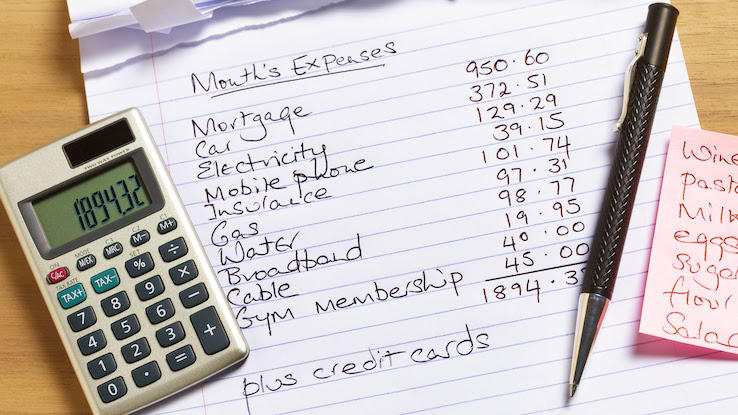 Month's Expenses
Mortgage 950·60
Car 372·51
Electricity 129·29
Mobile phone 39·15
Insurance 101·74
Gas 97·31
Water 98·77
Broadband 19·95
Cable 40·00
Gym Membership 45·00
1894·32
plus credit cards
TWO WAY POWER
1894.32
ON MODE
C/AC M/EX MRC M- M+
TAX RATE SET
TAX+ TAX- % ÷
7 8 9 ×
4 5 6 −
1 2 3 +
0 . =
Wine
pasta
Milk
eggs
sugar
flour
Salad